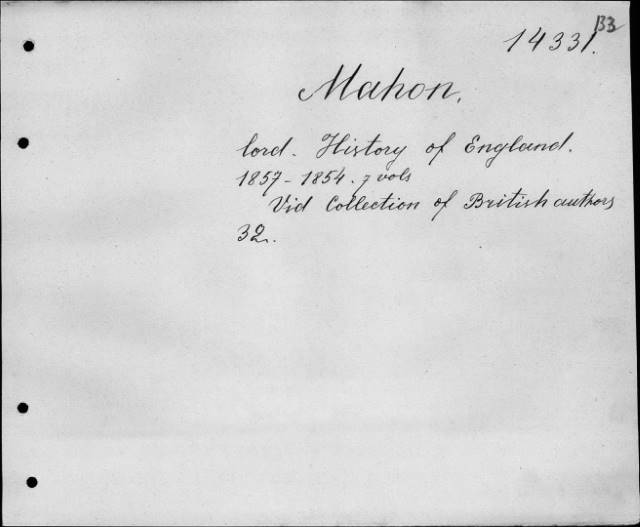 B3
14331.
Mahon.
lord. History of England.
1857-1854. 7 vols
Vid Collection of British authors
32.